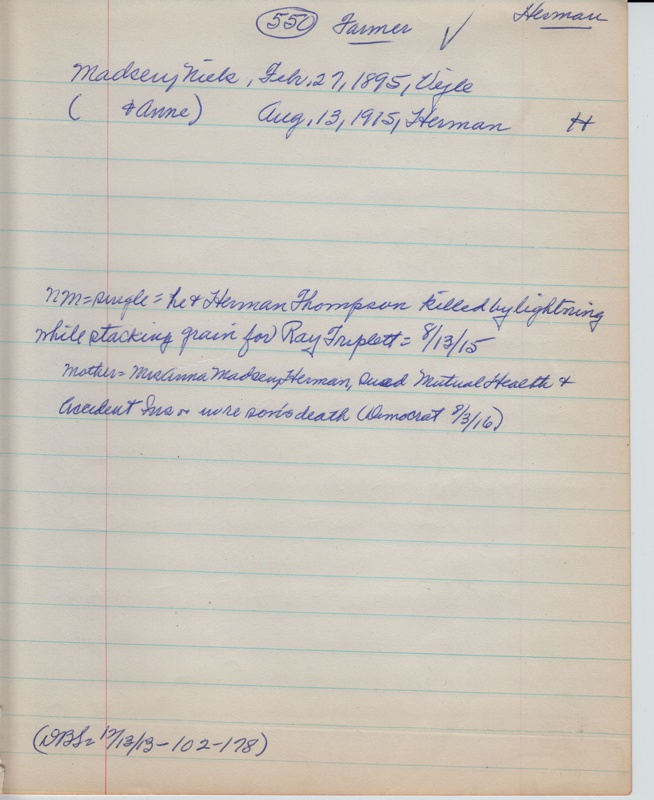 550 Farmer ✓ Herman
Madsen, Niels, Feb. 27, 1895, Vejle
( & Anne) Aug. 13, 1915, Herman H
NM = single = he & Herman Thompson killed by lightning
while stacking grain for Ray Triplett = 8/13/15
Mother = Mrs Anna Madsen, Herman, sued Mutual Health &
Accident Ins in re son's death (Democrat 8/3/16)
(DBS = 12/13/13 - 102 - 178)